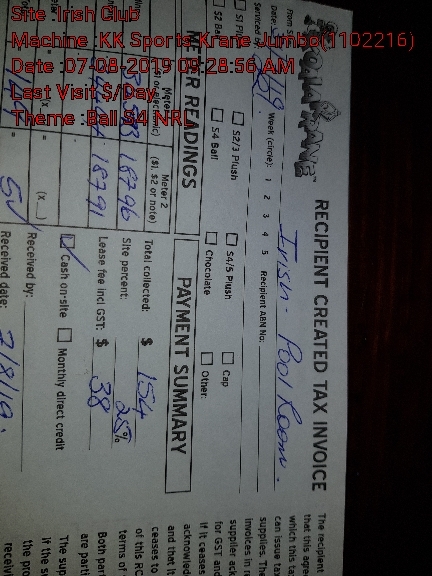 Site :Irish Club
Machine :KK Sports Krane Jumbo(1102216)
Date :07-08-2019 09:28:56 AM
Last Visit $/Day
Theme :Ball S4 NRL
KRANE
RECIPIENT CREATED TAX INVOICE
Irish - Pool Room.
Date:
Week (circle): 1 2 3 4 5 Recipient ABN No:
Serviced by
S1 Pl
S2/3 Plush
S4/5 Plush
Cap
S2 Ba
S4 Ball
Chocolate
Other:
METER READINGS
PAYMENT SUMMARY
Meter 2
($1, $2 or note)
18796
18791
Total collected: $ 154
Site percent: 25%
Lease fee incl GST: $ 38
Cash on-site
Monthly direct credit
Received by:
Received date: 7/8/19.
The recipient
that this agre
which this ta
can issue tax
supplies. The
invoices in r
supplier ack
for GST and
if it ceases
acknowled
and that it
ceases to
of this RC
terms of
Both par
are parti
The sup
if the s
the pro
receiv